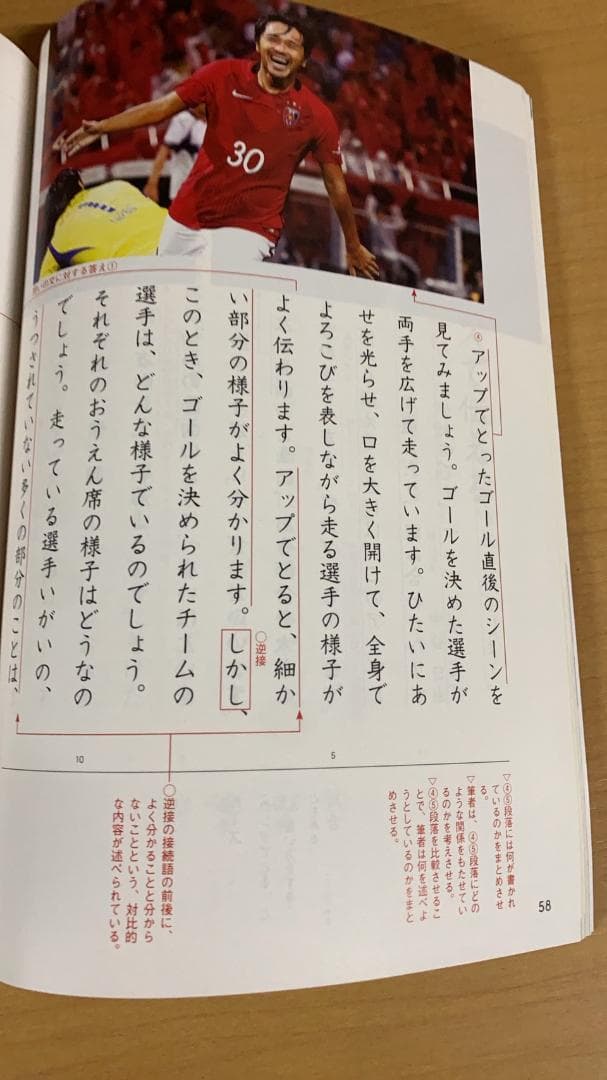 30
問いの文に対する答え①
④
アップでとったゴール直後のシーンを
見てみましょう。ゴールを決めた選手が
両手を広げて走っています。ひたいにあ
せを光らせ、口を大きく開けて、全身で
よろこびを表しながら走る選手の様子が
よく伝わります。アップでとると、細か
い部分の様子がよく分かります。しかし、
○逆接
このとき、ゴールを決められたチームの
選手は、どんな様子でいるのでしょう。
それぞれのおうえん席の様子はどうなの
でしょう。走っている選手いがいの、
うつされていない多くの部分のことは、
5
10
▽④⑤段落には何が書かれ
ているのかをまとめさせ
る。
▽筆者は、④⑤段落にどの
ような関係をもたせてい
るのかを考えさせる。
▽④⑤段落を比較させるこ
とで、筆者は何を述べよ
うとしているのかをまと
めさせる。
○逆接の接続語の前後に、
よく分かることと分から
ないことという、対比的
な内容が述べられている。
58